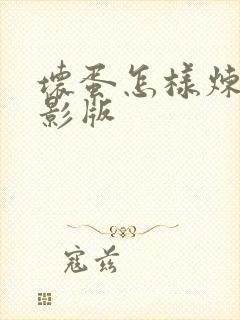 壞蛋怎樣煉
影版
寇兹